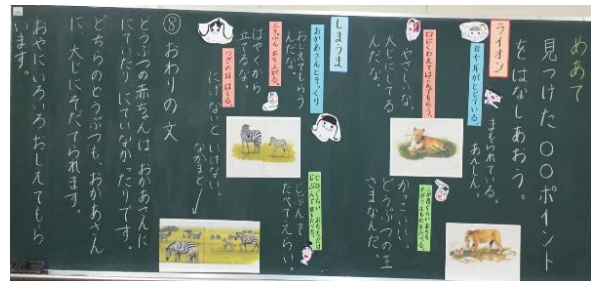 めあて
見つけた ○○ポイント
をはなしあおう。
ライオン
目や耳がとじている。
まもられている。
あんしん。
口にくわえてはこんでもらう。
やさしいな。
大じにしてる
んだな。
かっこいい。
どうぶつの王
さまなんだ。
しまうま
おかあさんとそっくり
おしえてもらう
んだな。
三十ぷん 立ち上がる。
はやくから
立てるな。
つぎの日 はしる。
にげないと いけない。
なかまと
じぶんで
たべてえらい。
⑧ おわりの文
どうぶつの赤ちゃんは、おかあさんに
にていたり、にていなかったりです。
どちらのどうぶつも、おかあさん
に、大じにそだてられます。
おやにいろいろおしえてもら
います。